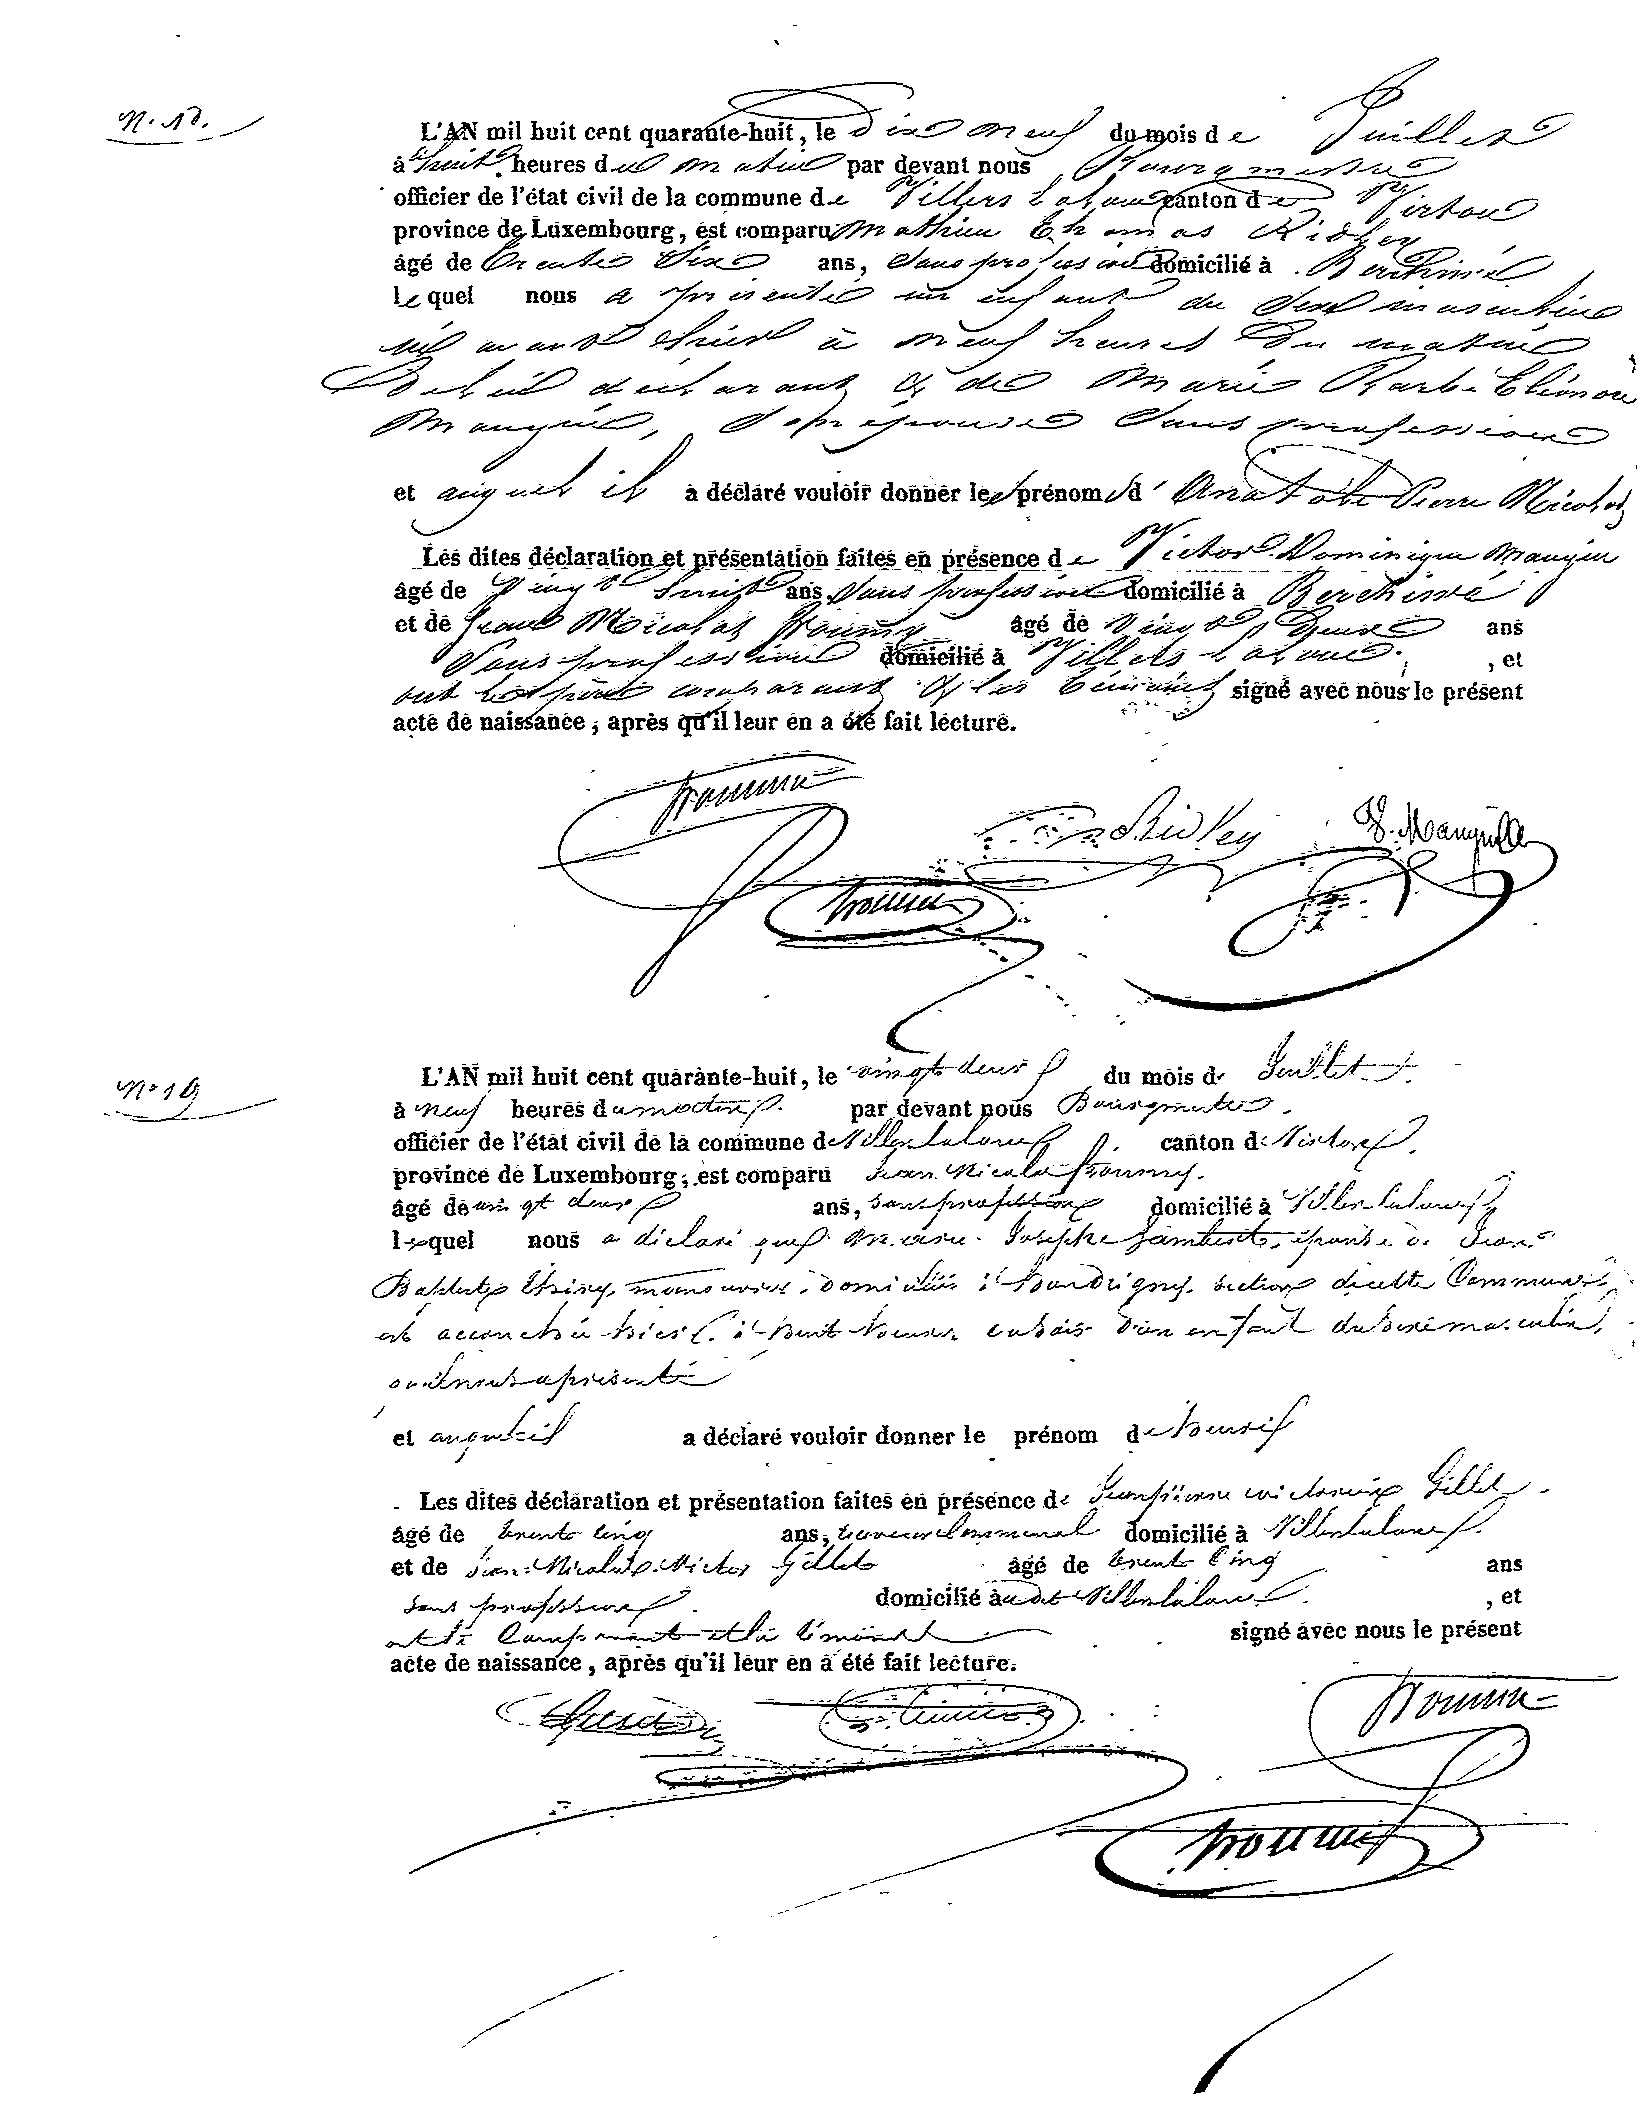 N. 18.
L'AN mil huit cent quarante-huit, le dix neuf du mois de Juillet
à huit heures du matin par devant nous Bourgmestre
officier de l'état civil de la commune de Villers la Loue canton de Virton
province de Luxembourg, est comparu Mathieu Thomas Ridley
âgé de trente six ans, sans profession domicilié à Berchiwé
lequel nous a présenté un enfant du sexe masculin
né avant hier à neuf heures du matin
de lui déclarant & de Marie Barbe Eléonore
Mangin, son épouse sans profession
et auquel il a déclaré vouloir donner les prénoms d'Anatole Pierre Nicolas
Les dites déclaration et présentation faites en présence de Victor Dominique Mangin
âgé de vingt huit ans, sans profession domicilié à Berchiwé
et de Jean Nicolas âgé de vingt deux ans
sans profession domicilié à Villers la Loue. , et
ont le père comparant & les témoins signé avec nous le présent
acte de naissance, après qu'il leur en a été fait lecture.
Ridley
N° 19
L'AN mil huit cent quarante-huit, le vingt deux du mois de Juillet
à neuf heures du matin par devant nous Bourgmestre
officier de l'état civil de la commune de Villers la Loue canton de Virton
province de Luxembourg, est comparu Jean Nicolas
âgé de vingt deux ans, sans profession domicilié à Villers la Loue
lequel nous a déclaré que Marie Josephe Lambert, épouse de Jean
Baptiste Thiry, manouvrier, domicilié à Houdrigny, section dicelle Commune
est accouchée hier à huit heures du soir d'un enfant du sexe masculin,
qu'il nous a présenté
et auquel il a déclaré vouloir donner le prénom de henri
Les dites déclaration et présentation faites en présence de Jean Pierre Gillet
âgé de trente cinq ans, receveur Communal domicilié à Villers la Loue
et de Jean Nicolas Victor Gillet âgé de trente cinq ans
sans profession domicilié à udit Villers la Loue , et
ont le Comparant et les témoins signé avec nous le présent
acte de naissance, après qu'il leur en a été fait lecture.